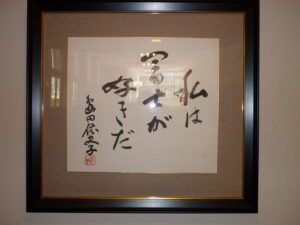 私は
富士が
好きだ